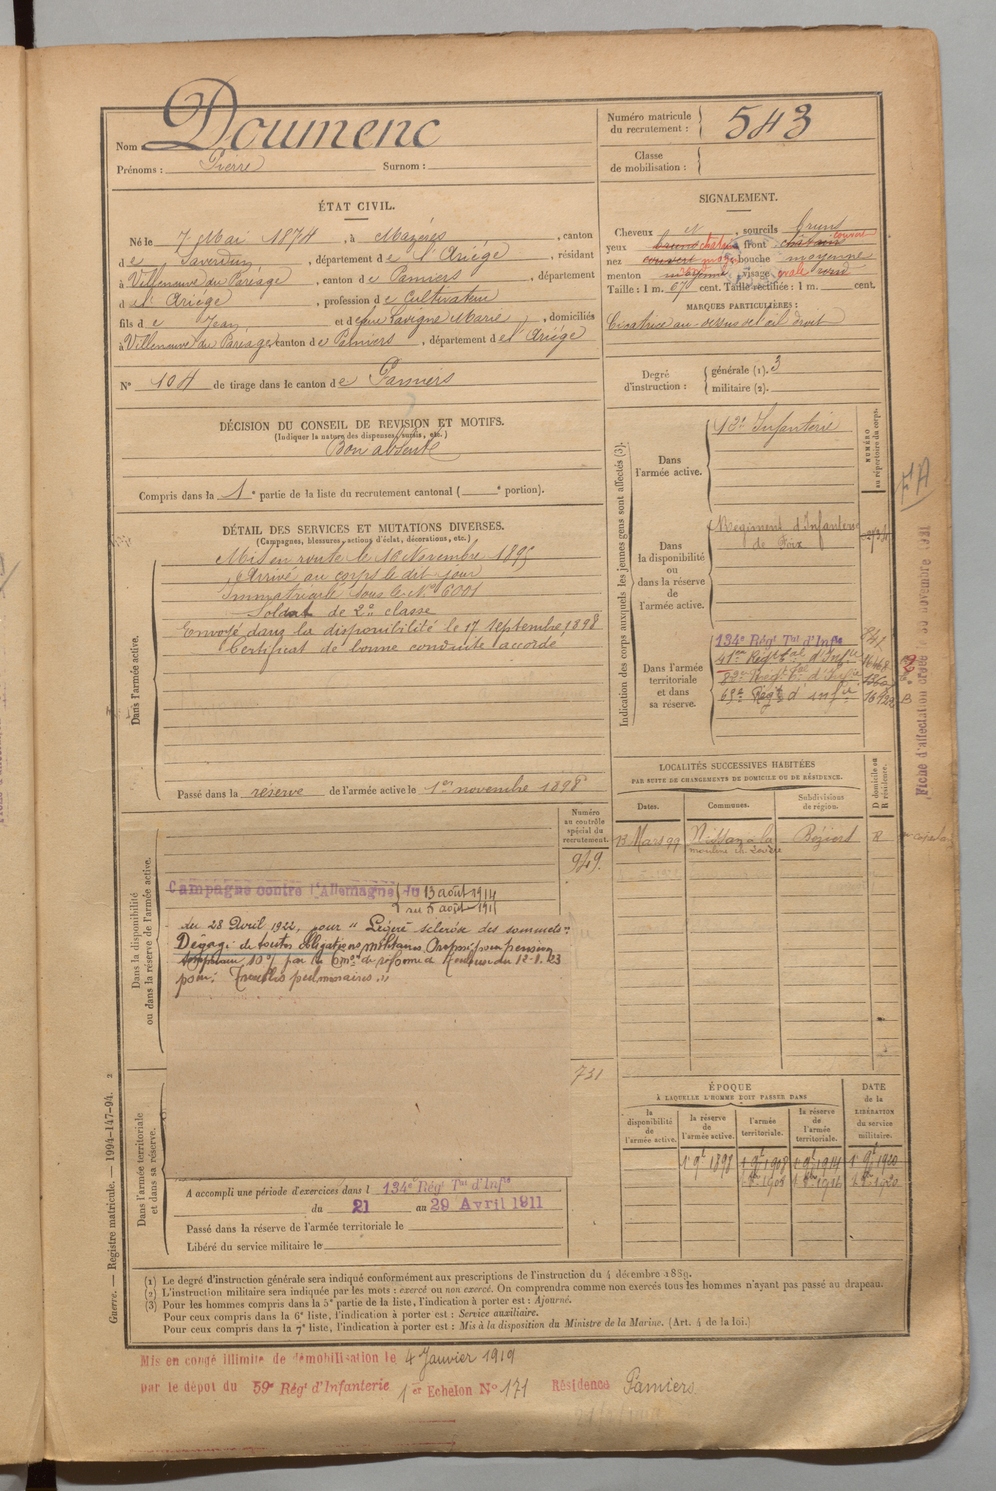 Nom Doumenc
Prénoms : Pierre Surnom :
Numéro matricule du recrutement : 543
Classe de mobilisation :
ÉTAT CIVIL.
Né le 7 Mai 1874, à Mazères, canton
de Saverdun, département de l'Ariège, résidant
à Villeneuve du Paréage, canton de Pamiers, département
de l'Ariège, profession de Cultivateur
fils de Jean et de Lavigne Marie, domiciliés
à Villeneuve du Paréage, canton de Pamiers, département de l'Ariège
N° 104 de tirage dans le canton de Pamiers
SIGNALEMENT.
Cheveux sourcils bruns
yeux bruns front
nez couvert bouche moyenne
menton visage ovale rond
Taille : 1 m. 67 cent. Taille rectifiée : 1 m. cent.
MARQUES PARTICULIÈRES :
Cicatrice au-dessus de l'œil droit
Degré d'instruction : générale (1). 3
militaire (2).
DÉCISION DU CONSEIL DE REVISION ET MOTIFS.
(Indiquer la nature des dispenses, sursis, etc.)
Bon absent
Compris dans la 1e partie de la liste du recrutement cantonal ( e portion).
DÉTAIL DES SERVICES ET MUTATIONS DIVERSES.
(Campagnes, blessures, actions d'éclat, décorations, etc.)
Dans l'armée active.
Mis en route le 16 Novembre 1895
Arrivé au corps le dit jour
Immatriculé sous le N° 6001
Soldat de 2e classe
Envoyé dans la disponibilité le 17 septembre 1898
Certificat de bonne conduite accordé
Passé dans la réserve de l'armée active le 1er novembre 1898
Indication des corps auxquels les jeunes gens sont affectés (3).
NUMÉRO au répertoire du corps.
Dans l'armée active.
Infanterie
Dans la disponibilité ou dans la réserve de l'armée active.
Régiment d'Infanterie
de Foix
Dans l'armée territoriale et dans sa réserve.
134e Régt Tal d'Infie
Fiche d'affectation
novembre
LOCALITÉS SUCCESSIVES HABITÉES
PAR SUITE DE CHANGEMENTS DE DOMICILE OU DE RÉSIDENCE.
Dates. Communes. Subdivisions de région. D domicile ou R résidence.
13 Mars 99 Béziers R
Dans la disponibilité ou dans la réserve de l'armée active.
Numéro au contrôle spécial du recrutement.
949.
Campagne contre l'Allemagne du 13 août 1914
du 28 Avril 1922, pour "Légère sclérose des sommets"
Dégagé de toutes obligations militaires. Proposé pour pension
10% par la de réforme de du 12-1-23
pour: Troubles pulmonaires."
751
Dans l'armée territoriale et dans sa réserve.
A accompli une période d'exercices dans l 134e Régt Tal d'Infie
du 21 au 29 Avril 1911
Passé dans la réserve de l'armée territoriale le
Libéré du service militaire le
ÉPOQUE
À LAQUELLE L'HOMME DOIT PASSER DANS
la disponibilité de l'armée active.
la réserve de l'armée active.
l'armée territoriale.
la réserve de l'armée territoriale.
DATE de la LIBÉRATION du service militaire.
1 9bre 1898 1 9bre 1908 1 9bre 1914 1 9bre 1920
Guerre. — Registre matricule. — 1994-147-94. 2
(1) Le degré d'instruction générale sera indiqué conformément aux prescriptions de l'instruction du 4 décembre 1889.
(2) L'instruction militaire sera indiquée par les mots : exercé ou non exercé. On comprendra comme non exercés tous les hommes n'ayant pas passé au drapeau.
(3) Pour les hommes compris dans la 5e partie de la liste, l'indication à porter est : Ajourné.
Pour ceux compris dans la 6e liste, l'indication à porter est : Service auxiliaire.
Pour ceux compris dans la 7e liste, l'indication à porter est : Mis à la disposition du Ministre de la Marine. (Art. 4 de la loi.)
Mis en congé illimité de démobilisation le 4 Janvier 1919
par le dépôt du 59e Régt d'Infanterie 1er Echelon N° 171 Résidence Pamiers